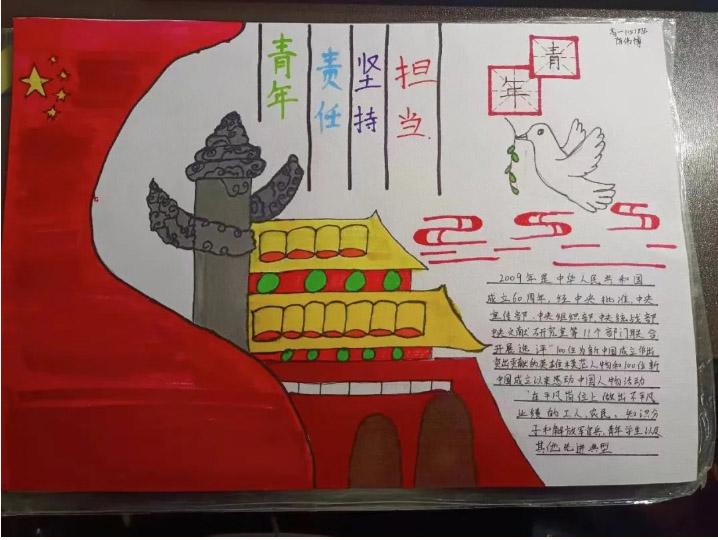 青年
责任
坚持
担当.
青
年
2009年是中华人民共和国
成立60周年,经中央批准,中央
宣传部、中央组织部、中央统战部
中央文献研究室等11个部门联合
开展选评“100位为新中国成立作出
突出贡献的英雄模范人物和100位新
中国成立以来感动中国人物活动
在平凡岗位上做出不平凡
业绩的工人、农民、知识分
子和解放军官兵、青年学生以及
其他先进典型